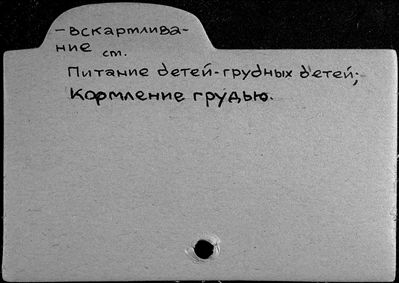 -вскармлива-
ние ст.
Питание детей-грудных детей;
Кормление грудью.